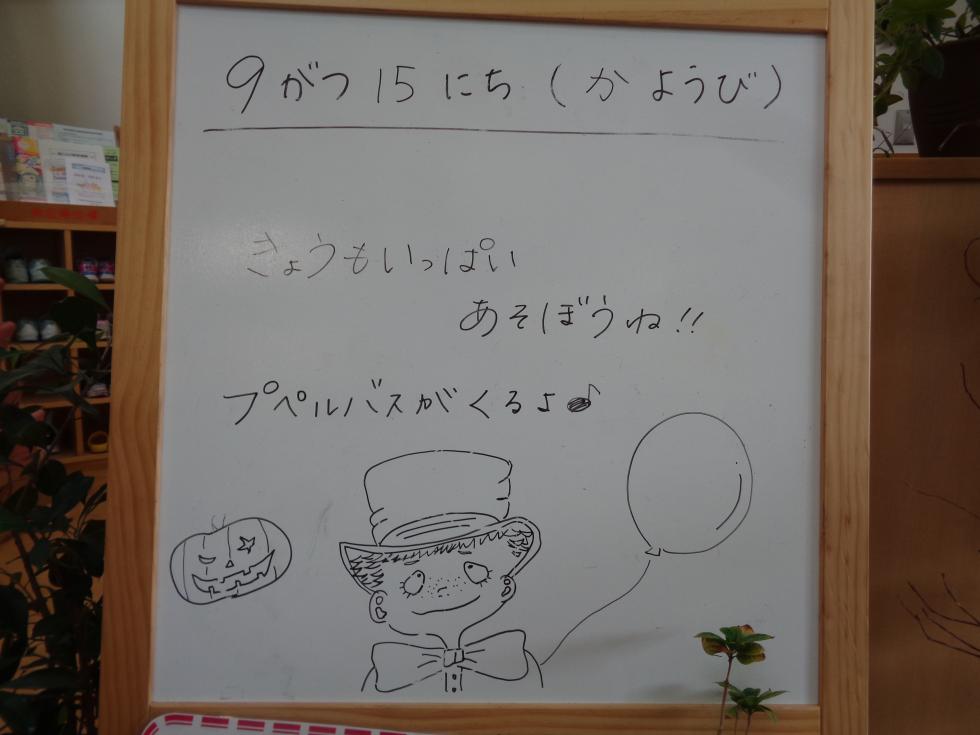 9がつ15にち(かようび)
きょうもいっぱい
あそぼうね!!
プペルバスがくるよ♪